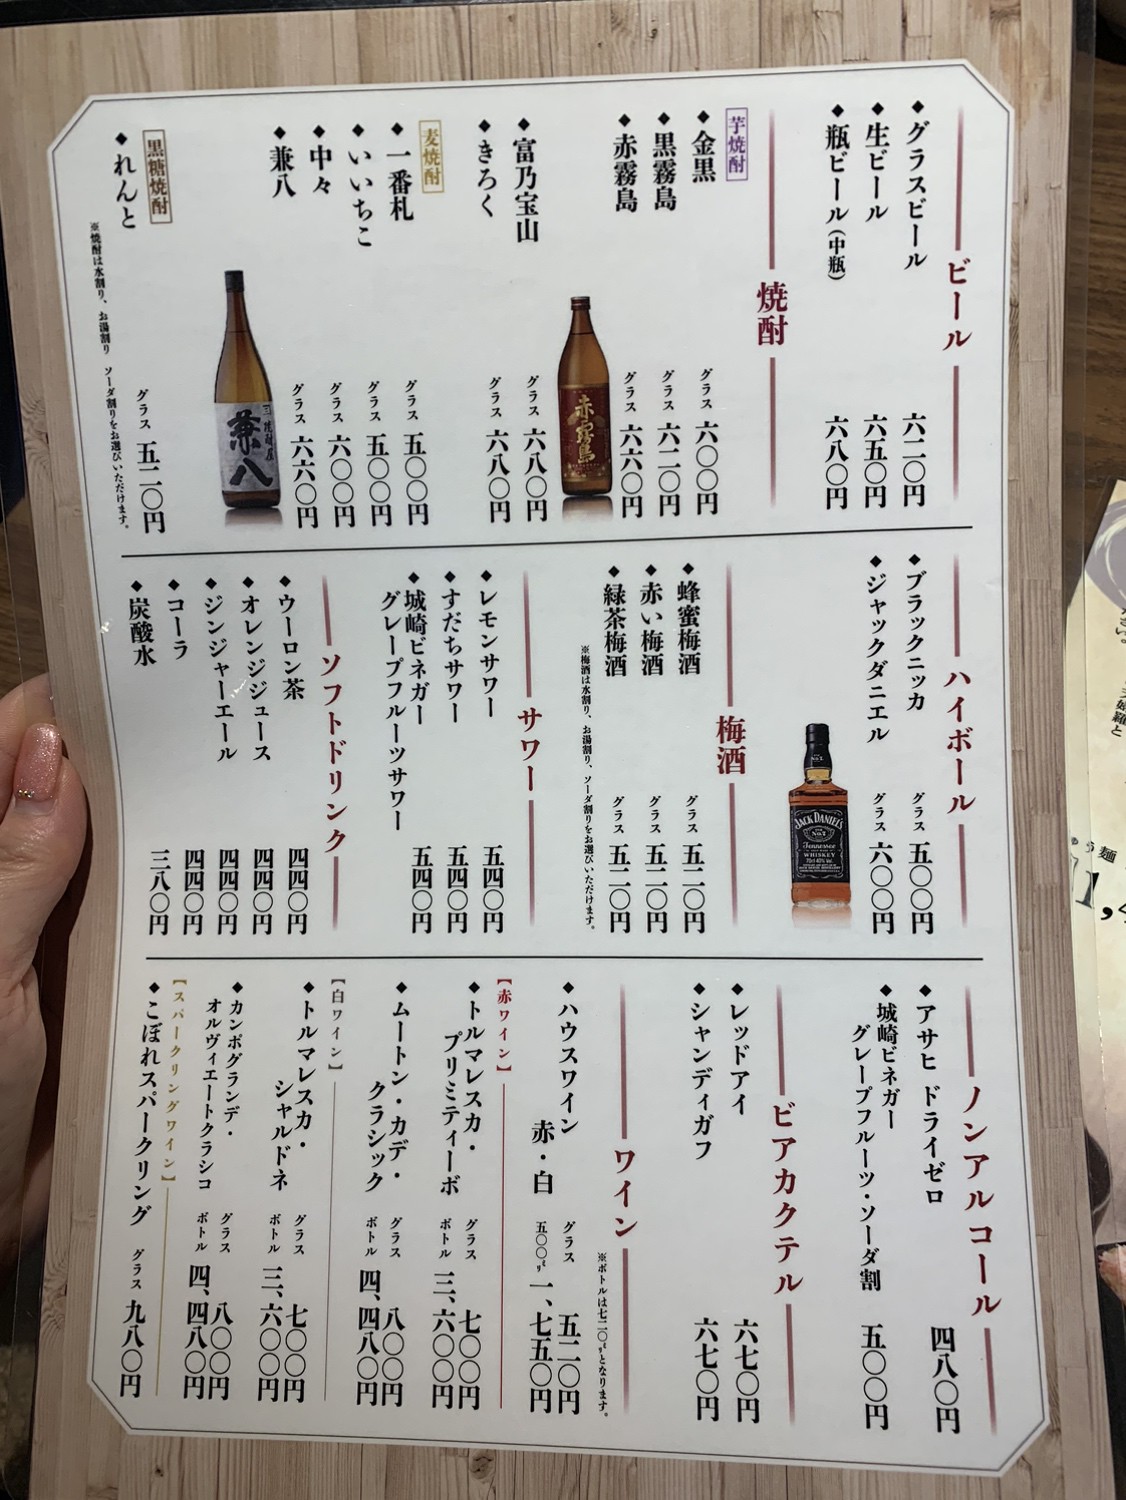 ビール
◆グラスビール 六二〇円
◆生ビール 六五〇円
◆瓶ビール(中瓶) 六八〇円
焼酎
芋焼酎
◆金黒 グラス 六〇〇円
◆黒霧島 グラス 六二〇円
◆赤霧島 グラス 六六〇円
赤霧島
◆富乃宝山 グラス 六八〇円
◆きろく グラス 六八〇円
麦焼酎
◆一番札 グラス 五〇〇円
◆いいちこ グラス 五〇〇円
◆中々 グラス 六〇〇円
◆兼八 グラス 六六〇円
兼八
黒糖焼酎
◆れんと グラス 五二〇円
※焼酎は水割り、お湯割り ソーダ割りをお選びいただけます。
ハイボール
◆ブラックニッカ グラス 五〇〇円
◆ジャックダニエル グラス 六〇〇円
JACK DANIEL'S
Tennessee
WHISKEY
梅酒
◆蜂蜜梅酒 グラス 五二〇円
◆赤い梅酒 グラス 五二〇円
◆緑茶梅酒 グラス 五二〇円
※梅酒は水割り、お湯割り、ソーダ割りをお選びいただけます。
サワー
◆レモンサワー 五四〇円
◆すだちサワー 五四〇円
◆城崎ビネガー
グレープフルーツサワー 五四〇円
ソフトドリンク
◆ウーロン茶 四四〇円
◆オレンジジュース 四四〇円
◆ジンジャーエール 四四〇円
◆コーラ 四四〇円
◆炭酸水 三八〇円
ノンアルコール
◆アサヒ ドライゼロ 四八〇円
◆城崎ビネガー
グレープフルーツ・ソーダ割 五〇〇円
ビアカクテル
◆レッドアイ 六七〇円
◆シャンディガフ 六七〇円
ワイン
※ボトルは七二〇㍉㍑となります。
◆ハウスワイン グラス 五二〇円
赤・白 五〇〇㍉㍑ 一、七五〇円
【赤ワイン】
◆トルマレスカ・ グラス 七〇〇円
プリミティーボ ボトル 三、六〇〇円
◆ムートン・カデ・ グラス 八〇〇円
クラシック ボトル 四、四八〇円
【白ワイン】
◆トルマレスカ・ グラス 七〇〇円
シャルドネ ボトル 三、六〇〇円
◆カンポグランデ・ グラス 八〇〇円
オルヴィエートクラシコ ボトル 四、四八〇円
【スパークリングワイン】
◆こぼれスパークリング グラス 九八〇円